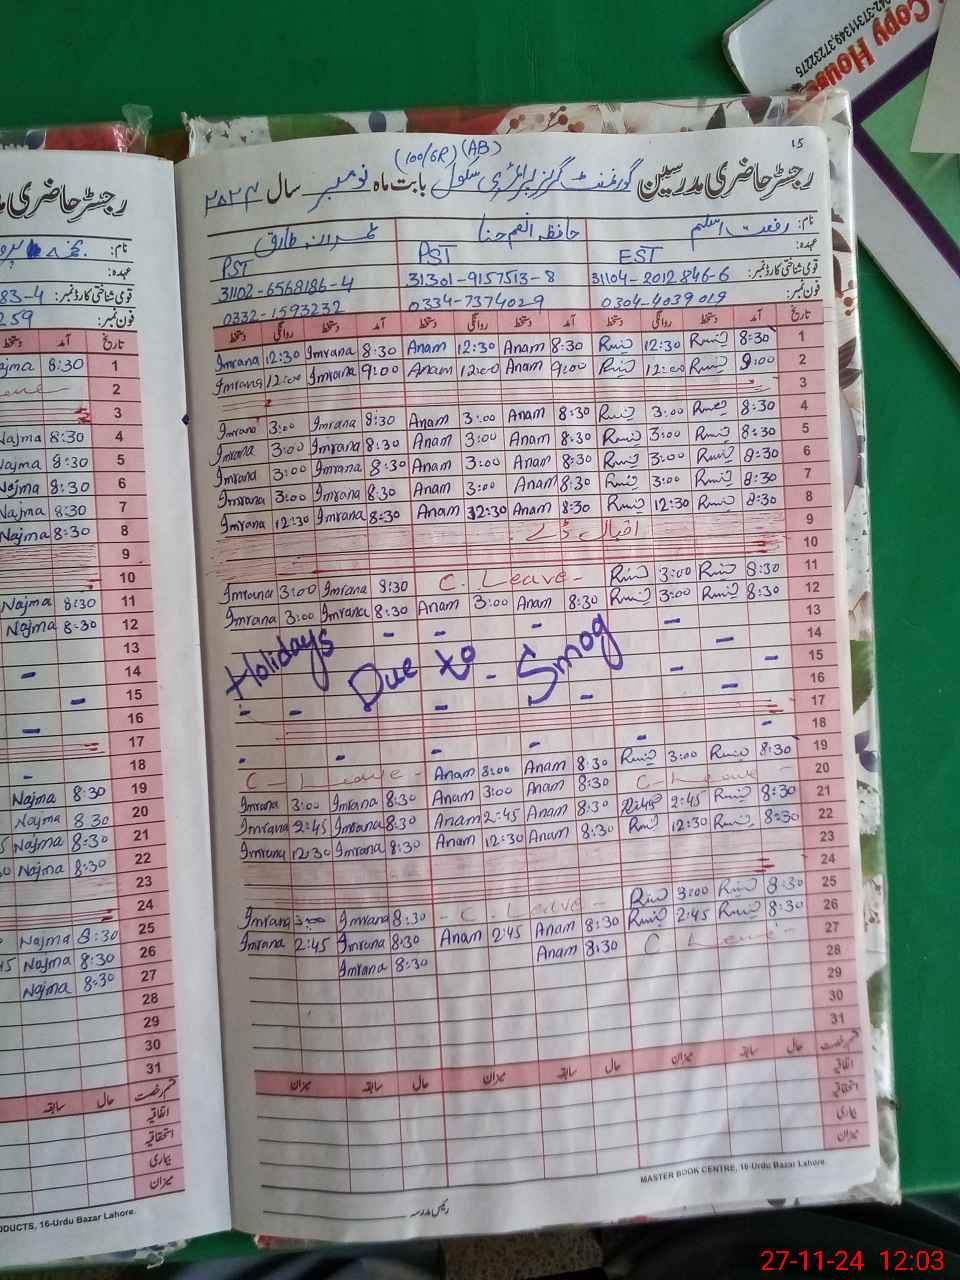 042-37311349,37232275
Copy House
(100/6R) (AB)
15
رجسٹر حاضری مدرسین گورنمنٹ گرلز پرائمری سکول بابت ماہ نومبر سال ۲۰۲۴
نام: رفعت اسلم حافظہ انعم حنا عمرانہ طارق
عہدہ: EST PST PST
قومی شناختی کارڈ نمبر: 31104-8012846-6 31301-9157513-8 31102-6568186-4
فون نمبر: 0304-4039019 0334-7374029 0332-1593232
تاریخ آمد دستخط روانگی دستخط آمد دستخط روانگی دستخط آمد دستخط روانگی دستخط
Imrana 12:30 Imrana 8:30 Anam 12:30 Anam 8:30 12:30 8:30 1
Imrana 12:00 Imrana 9:00 Anam 12:00 Anam 9:00 12:00 9:00 2
3
Imrana 3:00 Imrana 8:30 Anam 3:00 Anam 8:30 3:00 8:30 4
Imrana 3:00 Imrana 8:30 Anam 3:00 Anam 8:30 3:00 8:30 5
Imrana 3:00 Imrana 8:30 Anam 3:00 Anam 8:30 3:00 8:30 6
Imrana 3:00 Imrana 8:30 Anam 3:00 Anam 8:30 3:00 8:30 7
Imrana 12:30 Imrana 8:30 Anam 12:30 Anam 8:30 12:30 8:30 8
اقبال ڈے 9
10
Imrana 3:00 Imrana 8:30 C. Leave - 3:00 8:30 11
Imrana 3:00 Imrana 8:30 Anam 3:00 Anam 8:30 3:00 8:30 12
13
14
Holidays Due to Smog
15
16
17
18
C - Leave - Anam 3:00 Anam 8:30 3:00 8:30 19
Imrana 3:00 Imrana 8:30 Anam 3:00 Anam 8:30 C - Leave - 20
Imrana 2:45 Imrana 8:30 Anam 2:45 Anam 8:30 2:45 8:30 21
Imrana 12:30 Imrana 8:30 Anam 12:30 Anam 8:30 12:30 8:30 22
23
24
Imrana 3:00 Imrana 8:30 - C. Leave - 3:00 8:30 25
Imrana 2:45 Imrana 8:30 Anam 2:45 Anam 8:30 2:45 8:30 26
Imrana 8:30 Anam 8:30 C Leave - 27
28
29
30
31
قسم رخصت حال سابقہ میزان حال سابقہ میزان حال سابقہ میزان
اتفاقیہ
استحقاقیہ
بیماری
میزان
MASTER BOOK CENTRE, 16-Urdu Bazar Lahore.
رئیس مدرسہ
رجسٹر حاضری
نام:
عہدہ:
قومی شناختی کارڈ نمبر: 83-4
فون نمبر: 259
تاریخ آمد دستخط
Najma 8:30 1
2
3
Najma 8:30 4
Najma 8:30 5
Najma 8:30 6
Najma 8:30 7
Najma 8:30 8
9
10
Najma 8:30 11
Najma 8:30 12
13
14
15
16
17
18
Najma 8:30 19
Najma 8:30 20
Najma 8:30 21
Najma 8:30 22
23
24
Najma 8:30 25
Najma 8:30 26
Najma 8:30 27
28
29
30
31
قسم رخصت حال سابقہ
اتفاقیہ
استحقاقیہ
بیماری
میزان
DUCTS, 16-Urdu Bazar Lahore.
27-11-24 12:03